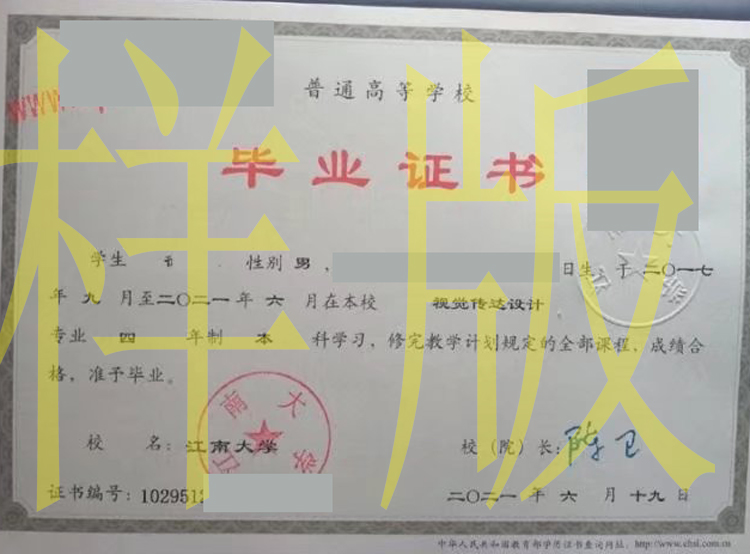 样版
www.
普通高等学校
毕业证书
学生 性别 男， 日生，于二〇一七
年 九 月至二〇二一年 六 月在本校 视觉传达设计
专业 四 年制 本 科学习，修完教学计划规定的全部课程，成绩合
格，准予毕业。
江南大学
校 名：江南大学 校（院）长：陈卫
证书编号：1029512 二〇二一 年 六 月 十九 日
中华人民共和国教育部学历证书查询网址：http://www.chsi.com.cn